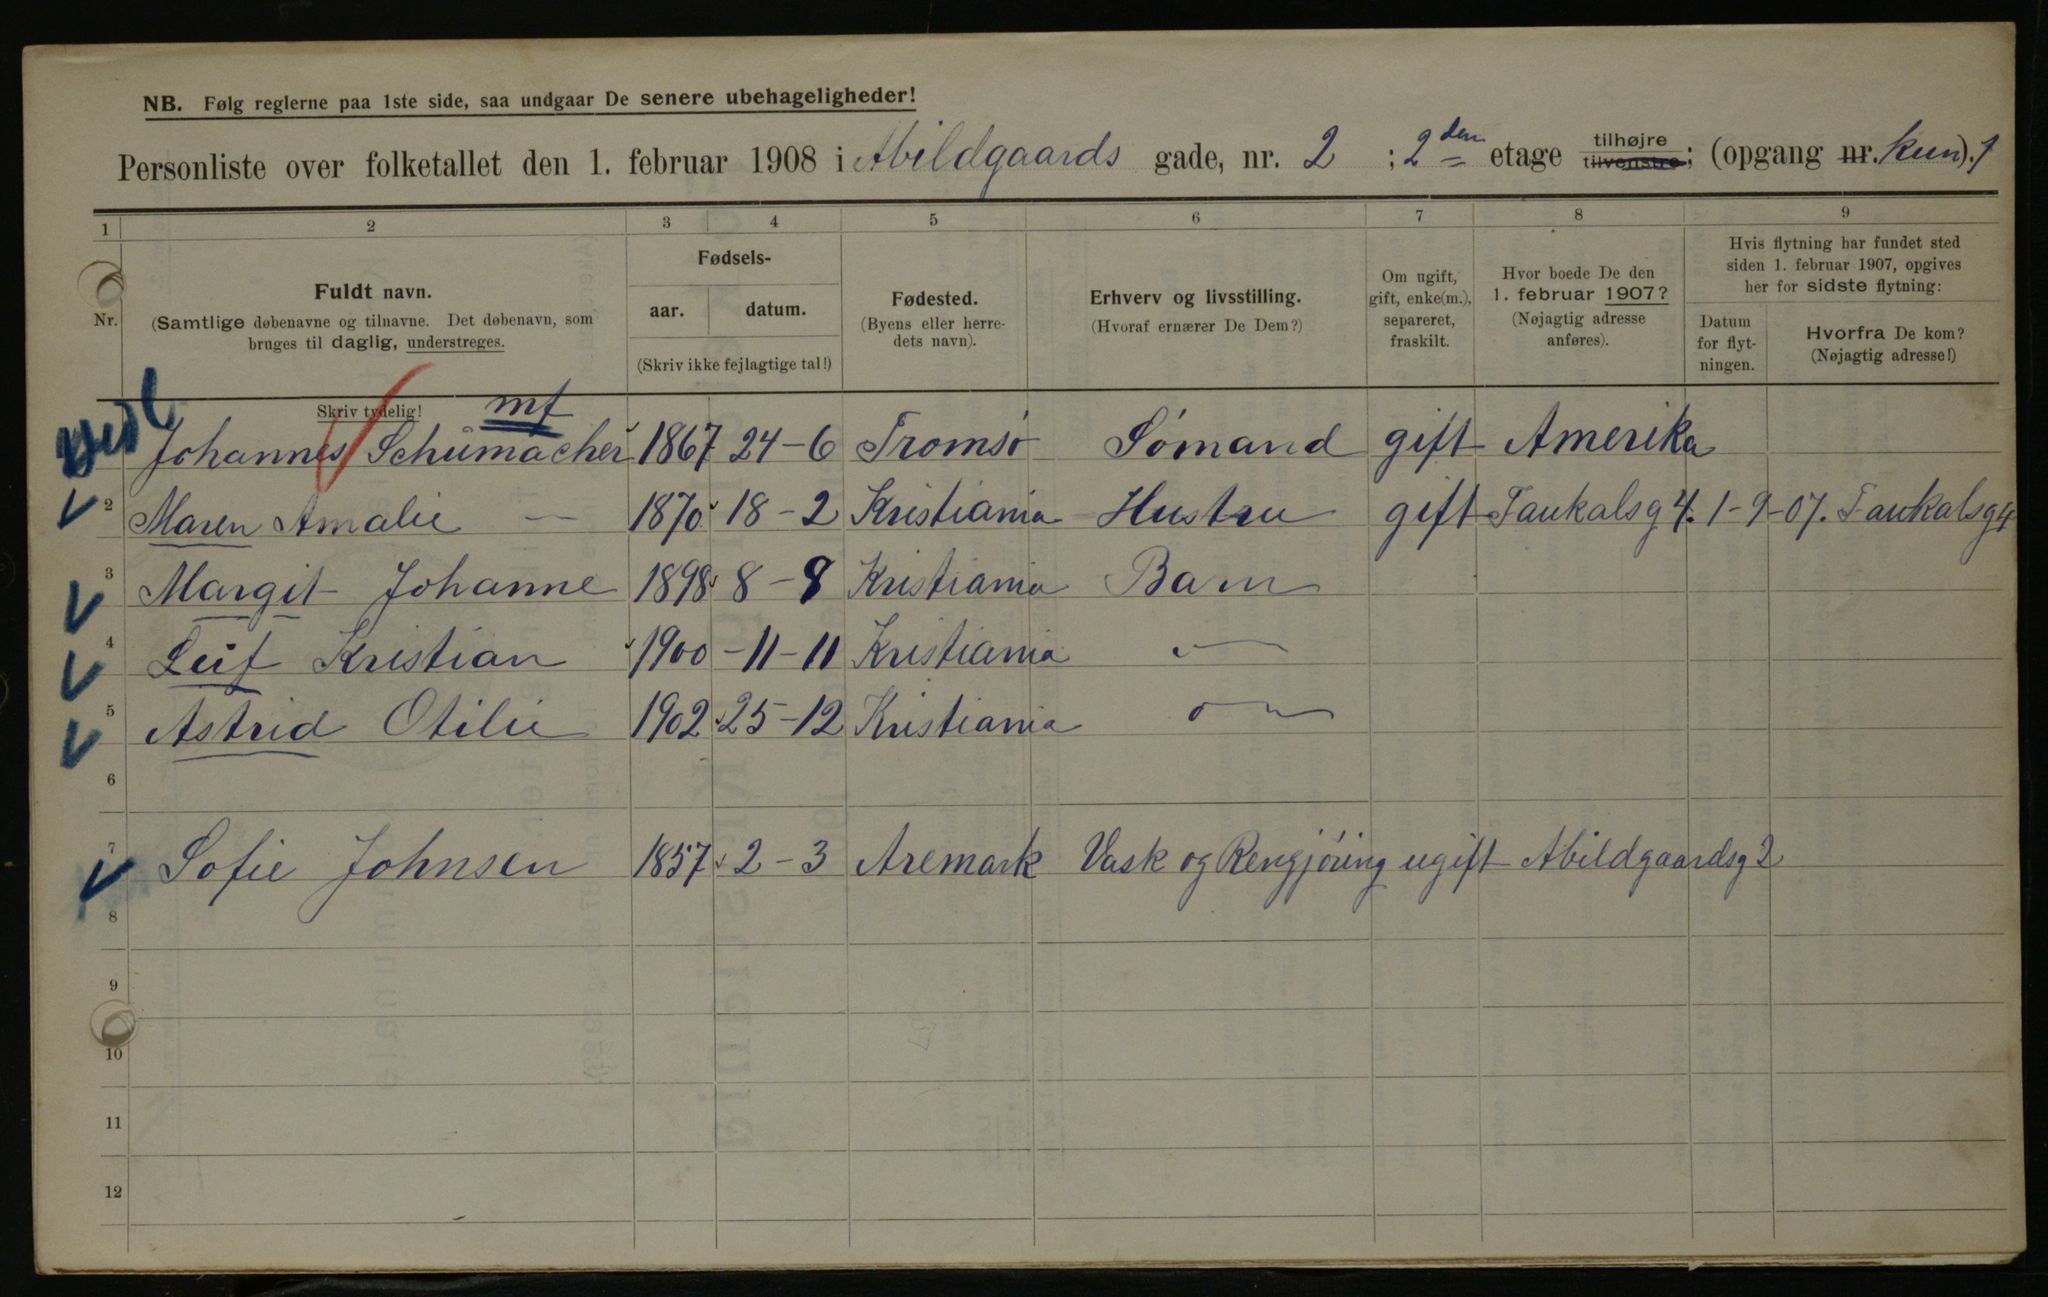 NB. Følg reglerne paa 1ste side, saa undgaar De senere ubehageligheder!
Personliste over folketallet den 1. februar 1908 i Abildgaards gade, nr. 2 ; 2den etage tilhøjre tilvenstre; (opgang nr. kun). 1
1 2 3 4 5 6 7 8 9
Nr.
Fuldt navn.
(Samtlige døbenavne og tilnavne. Det døbenavn, som
bruges til daglig, understreges.
Skriv tydelig!
Fødsels-
aar. datum.
(Skriv ikke fejlagtige tal!)
Fødested.
(Byens eller herre-
dets navn).
Erhverv og livsstilling.
(Hvoraf ernærer De Dem?)
Om ugift,
gift, enke(m.),
separeret,
fraskilt.
Hvor boede De den
1. februar 1907?
(Nøjagtig adresse
anføres).
Hvis flytning har fundet sted
siden 1. februar 1907, opgives
her for sidste flytning:
Datum
for flyt-
ningen.
Hvorfra De kom?
(Nøjagtig adresse!)
mf
Johannes Schümacher 1867 24-6 Tromsø Sømand gift Amerika
2 Maren Amalie — 1870 18-2 Kristiania Hustru gift Faukalsg 4. 1-9-07. Faukalsg 4
3 Margit Johanne 1898 8-8 Kristiania Barn
4 Leif Kristian 1900 -11-11 Kristiania —
5 Astrid Otilie 1902 25-12 Kristiania —
6
7 Sofie Johnsen 1857 2-3 Aremark Vask og Rengjøring ugift Abildgaardsg 2
8
9
10
11
12